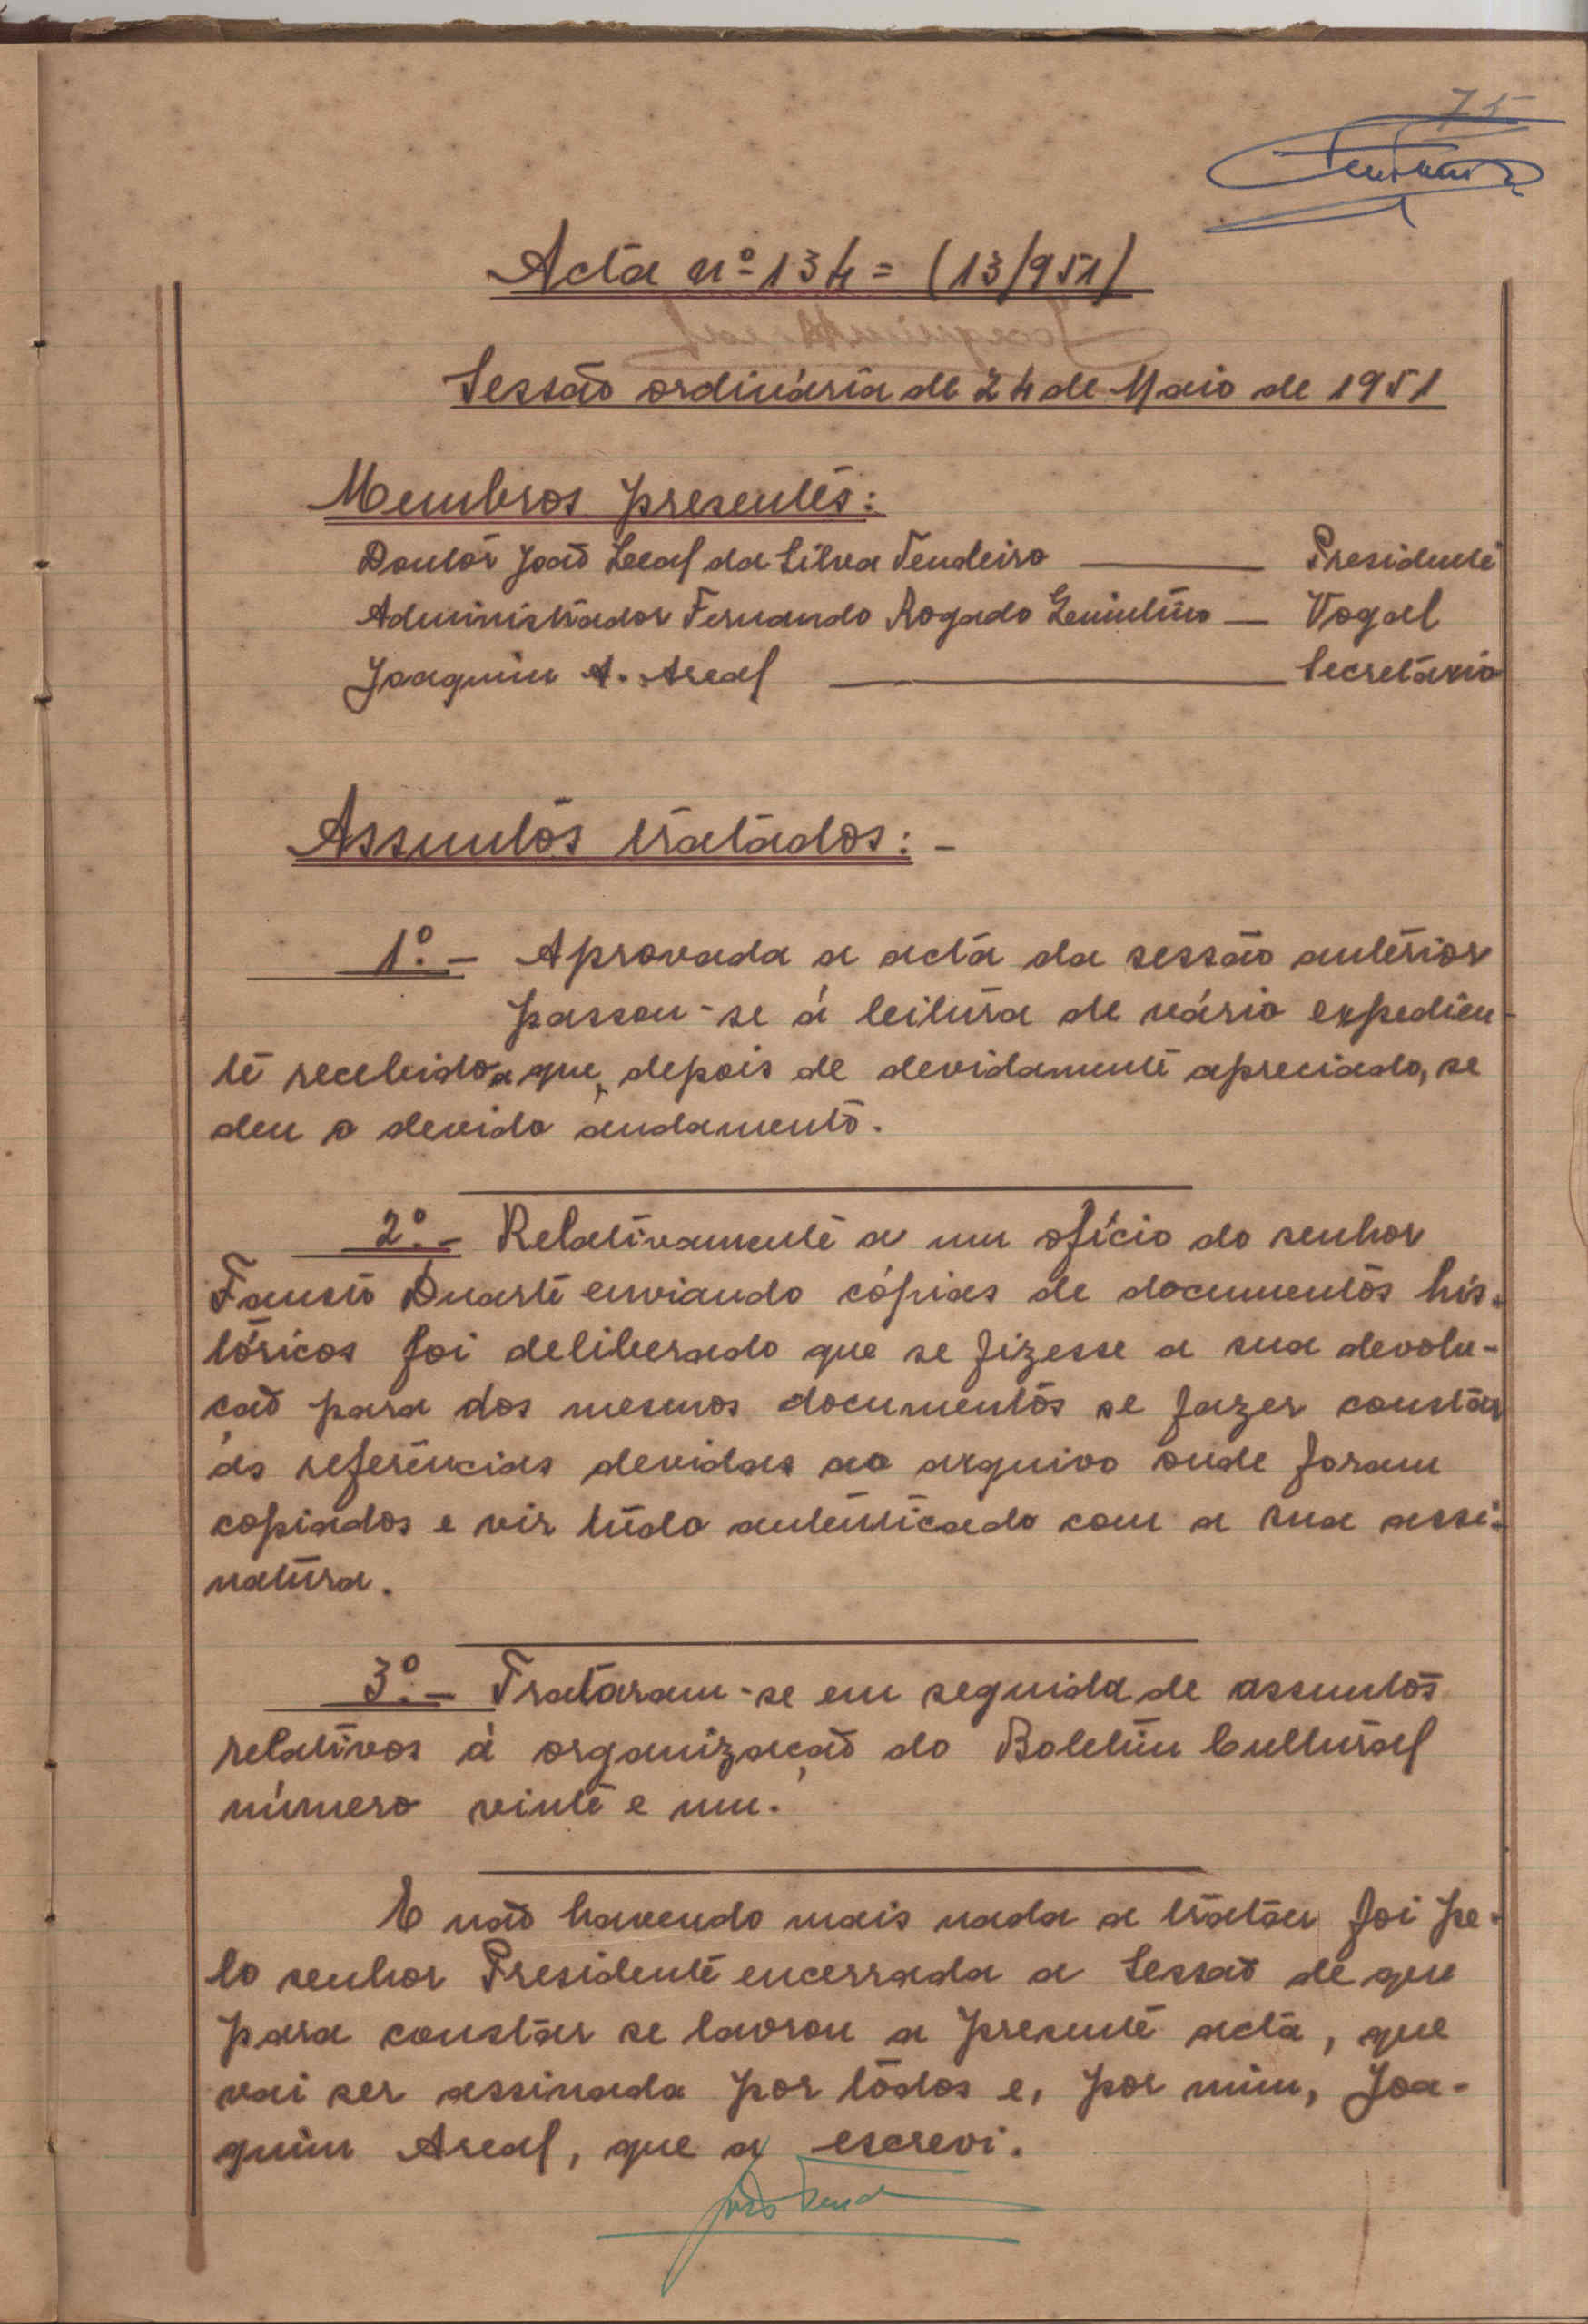 75
Acta nº 134 = (13/951)
Sessão ordinária de 24 de Maio de 1951
Membros presentes:
Doutor João Leal da Silva Tendeiro — Presidente
Administrador Fernando Rogado Quintino — Vogal
Joaquim A. Areal — Secretário
Assuntos tratados: -
1º. - Aprovada a acta da sessão anterior
passou-se á leitura de vário expedien-
te recebido a que, depois de devidamente apreciado, se
deu o devido andamento.
2º. - Relativamente a um ofício do senhor
Fausto Duarte enviando cópias de documentos his-
tóricos foi deliberado que se fizesse a sua devolu-
ção para dos mesmos documentos se fazer constar
as referências devidas ao arquivo onde foram
copiados e vir tudo autênticado com a sua assi-
natura.
3º. - Trataram-se em seguida de assuntos
relativos á organização do Boletim Cultural
número vinte e um.
E não havendo mais nada a tratar foi pe-
lo senhor Presidente encerrada a Sessão de que
para constar se lavrou a presente acta, que
vai ser assinada por todos e, por mim, Joa-
quim Areal, que a escrevi.